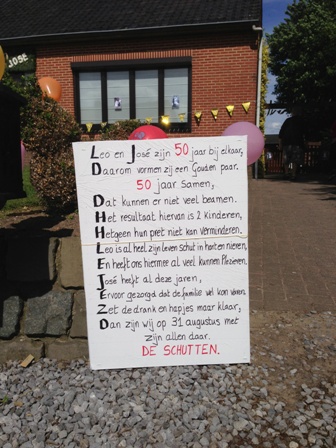 JOSÉ
Leo en José zijn 50 jaar bij elkaar,
Daarom vormen zij een Gouden paar.
50 jaar Samen,
Dat kunnen er niet veel beamen.
Het resultaat hiervan is 2 kinderen,
Hetgeen hun pret niet kan verminderen.
Leo is al heel zijn leven schut in hart en nieren,
En heeft ons hiermee al veel kunnen Plezieren.
José heeft al deze jaren,
Ervoor gezorgd dat de familie wel kon varen.
Zet de drank en hapjes maar klaar,
Dan zijn wij op 31 augustus met
zijn allen daar.
DE SCHUTTEN.